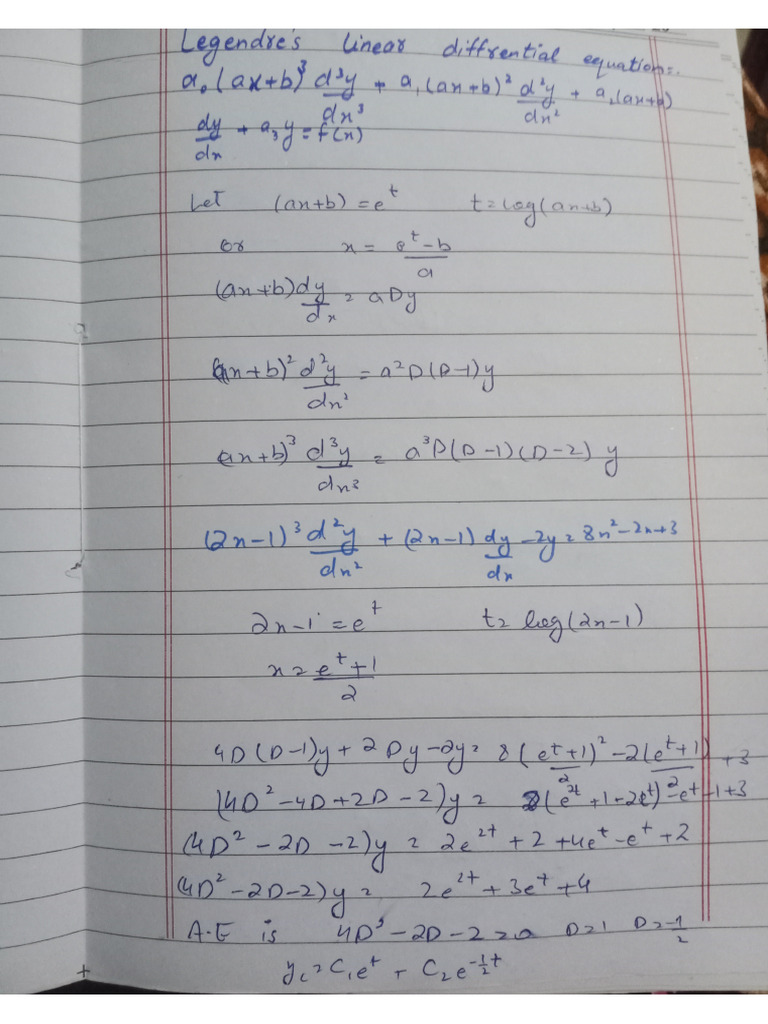 Legendre's linear diffrential equation:-
a₀(ax+b)³ d³y/dx³ + a₁(ax+b)² d²y/dx² + a₂(ax+b)
dy/dx + a₃y = f(x)
Let (ax+b) = eᵗ t = log(ax+b)
or x = (eᵗ-b)/a
(ax+b) dy/dx = aDy
(ax+b)² d²y/dx² = a²D(D-1)y
(ax+b)³ d³y/dx³ = a³D(D-1)(D-2) y
(2x-1)³ d²y/dx² + (2x-1) dy/dx - 2y = 8x²-2x+3
2x-1 = eᵗ t = log(2x-1)
x = (eᵗ+1)/2
4D(D-1)y + 2Dy - 2y = 8((eᵗ+1)/2)² - 2(eᵗ+1)/2 + 3
(4D²-4D+2D-2)y = 2(e²ᵗ+1+2eᵗ) - eᵗ-1+3
(4D²-2D-2)y = 2e²ᵗ+2+4eᵗ-eᵗ+2
(4D²-2D-2)y = 2e²ᵗ+3eᵗ+4
A.E is 4D³-2D-2=0 D=1 D=-1/2
y_c = C₁eᵗ + C₂e^(-1/2 t)